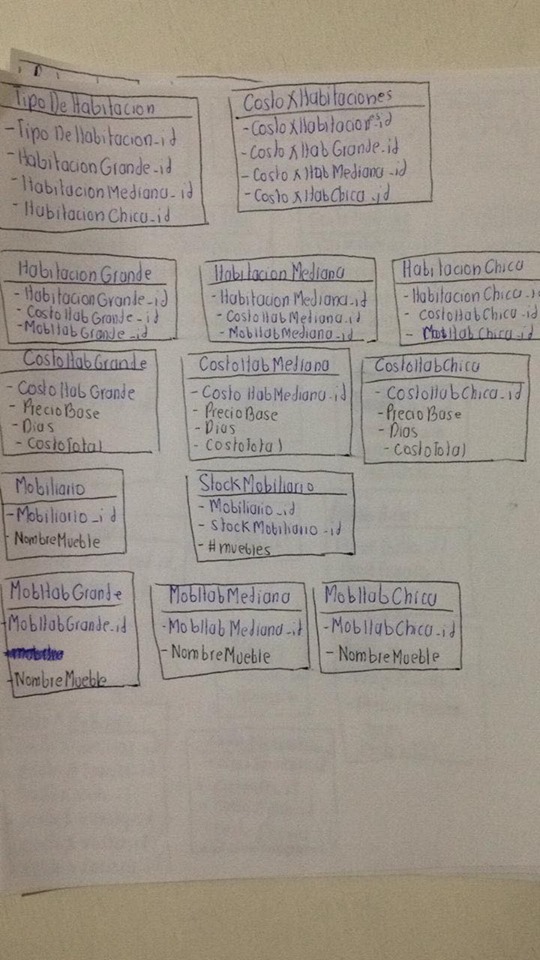 Tipo De Habitacion
- Tipo De Habitacion_id
- Habitacion Grande_id
- Habitacion Mediana_id
- Habitacion Chica_id
Costo X Habitaciones
- Costo X Habitaciones_id
- Costo X Hab Grande_id
- Costo X Hab Mediana_id
- Costo X Hab Chica_id
Habitacion Grande
- Habitacion Grande_id
- Costo Hab Grande_id
- Mob Hab Grande_id
Habitacion Mediana
- Habitacion Mediana_id
- Costo Hab Mediana_id
- Mob Hab Mediana_id
Habitacion Chica
- Habitacion Chica_i
- costo Hab Chica_id
- Mob Hab Chica_id
Costo Hab Grande
- Costo Hab Grande
- Precio Base
- Dias
- Costo Total
Costo Hab Mediana
- Costo Hab Mediana_id
- Precio Base
- Dias
- Costo total
Costo Hab Chica
- Costo Hab Chica_id
- Precio Base
- Dias
- Costo Total
Mobiliario
- Mobiliario_id
- Nombre Mueble
Stock Mobiliario
- Mobiliario_id
- Stock Mobiliario_id
- # muebles
Mob Hab Grande
- Mob Hab Grande_id
- Nombre Mueble
Mob Hab Mediana
- Mob Hab Mediana_id
- Nombre Mueble
Mob Hab Chica
- Mob Hab Chica_id
- Nombre Mueble